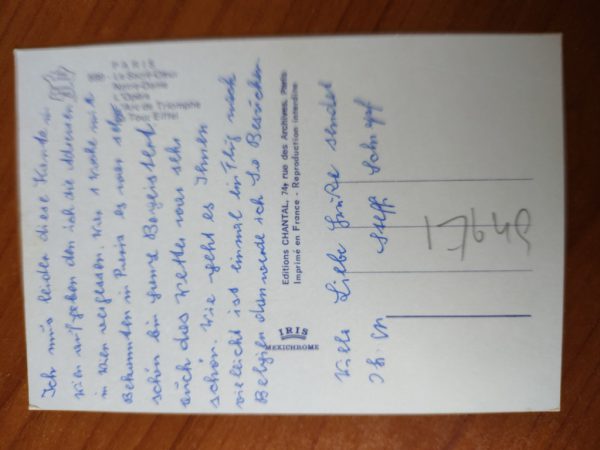 PARIS
Le Sacré-Cœur
Notre-Dame
L'Opéra
L'Arc de Triomphe
Tour Eiffel
Ich mus leider diese Karte in
Wien aufgeben den ich die Adressen
in Wien vergessen. War 1 Woche mit
Bekannten in Paris es war sehr
schön bin ganz Begeistert
auch das Wetter war sehr
schön. Wie geht es Ihnen
vieleicht ist einmal ein Flug nach
Belgien dann werde ich Sie Besuchen
Editions CHANTAL, 74, rue des Archives, Paris
Imprimé en France - Reproduction interdite
IRIS
MEXICHROME
Viele Liebe Grüße sendet
Steffi
17649